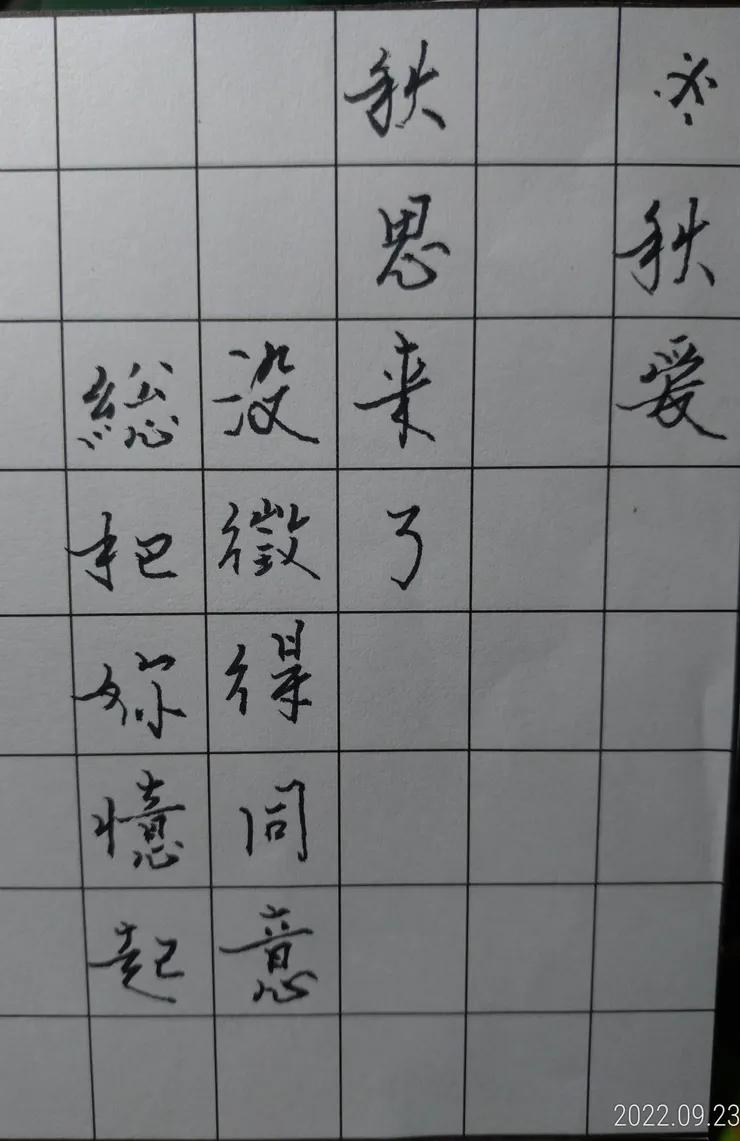 秋爱
秋思来了
没徵得同意
総把妳憶起
2022.09.23